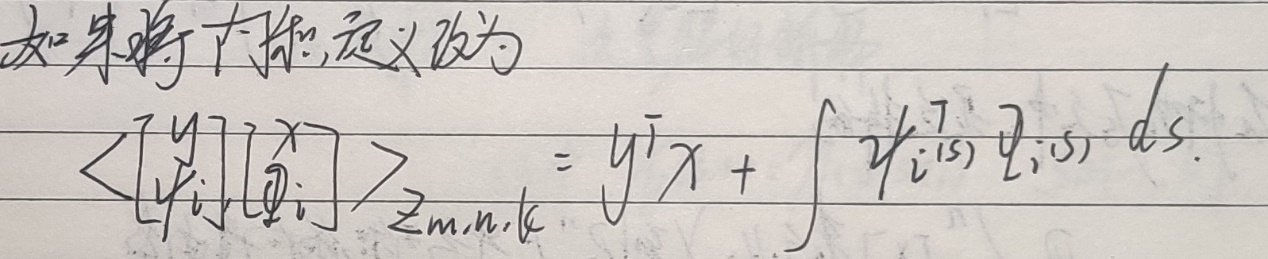 如果将内积定义改为
<[y ψi], [x Φi]>Zm,n,k = yᵀx + ∫ ψiᵀ(s) Φi(s) ds.